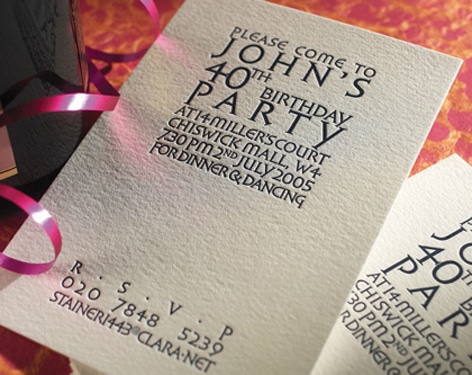 PLEASE COME TO
JOHN'S
40TH BIRTHDAY
PARTY
AT 14 MILLER'S COURT
CHISWICK MALL, W4
730 PM 2ND JULY 2005
FOR DINNER & DANCING
R · S · V · P
020 7848 5239
STAINER1443@CLARA·NET
PLEAS
JO
40T
PA
AT 14 MILLER'S CO
CHISWICK MALL
730 PM 2ND JUL
FOR DINNER & D